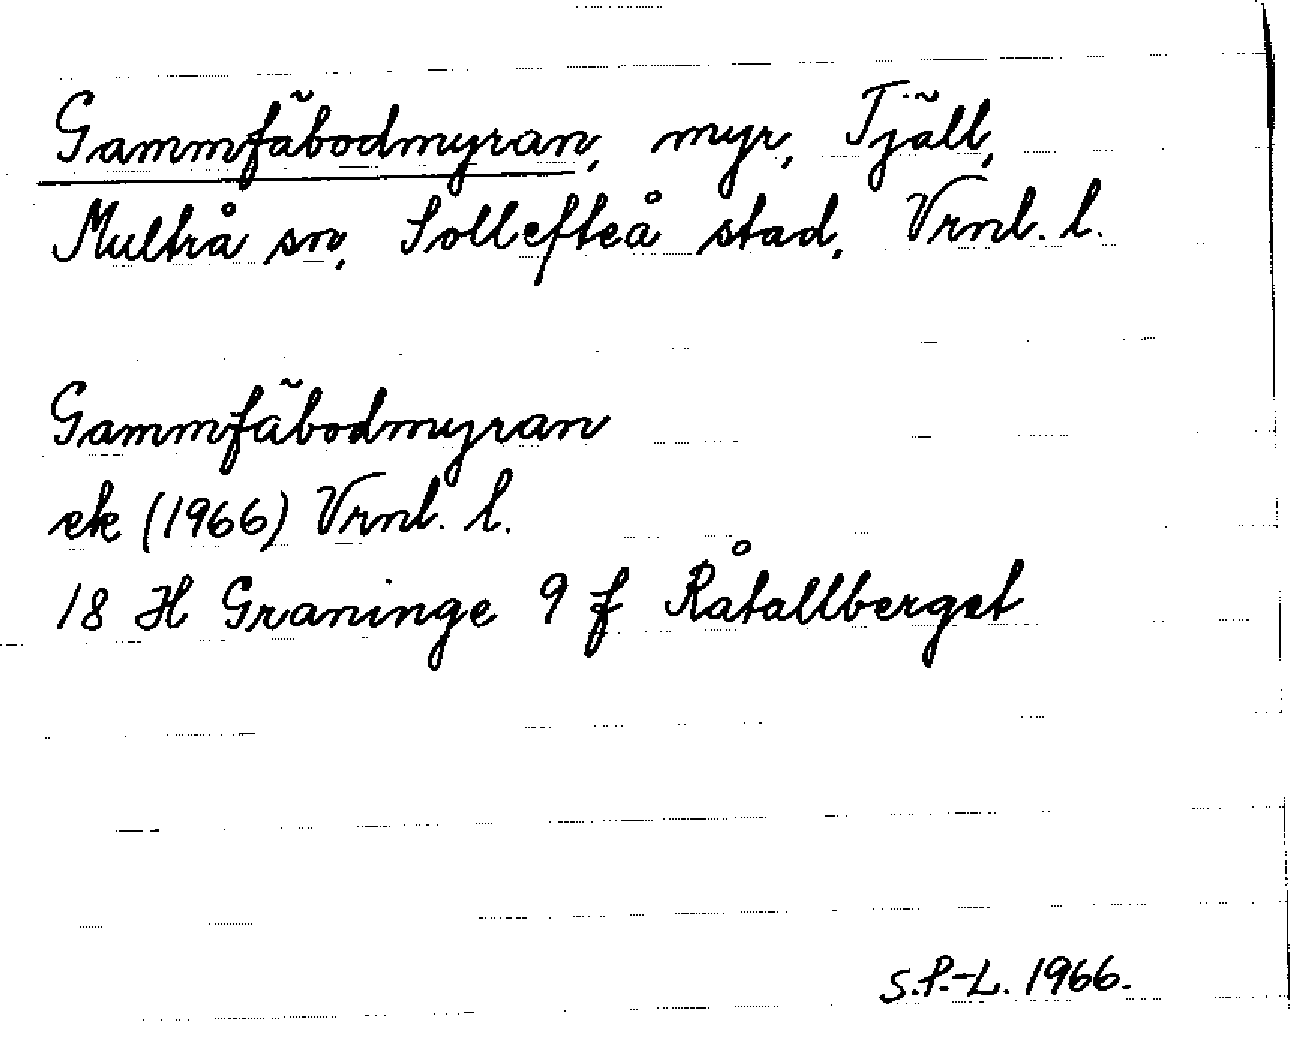 Gammfäbodmyran, myr, Tjäll,
Multrå sn, Sollefteå stad, Vrnl. l.
Gammfäbodmyran
ek (1966) Vrnl. l.
18 H Graninge 9 f Råtallberget
S.P.-L. 1966.